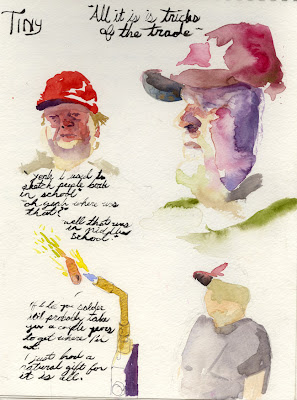 TINY
"All it is is tricks
of the trade"
"yeah I used to
sketch people both
in school"
"oh yeah where was
that?"
"well that was
in middle
School."
"it'll probably take
you a couple years
to get where I'm
at.
I just had a
natural gift for
it is all.